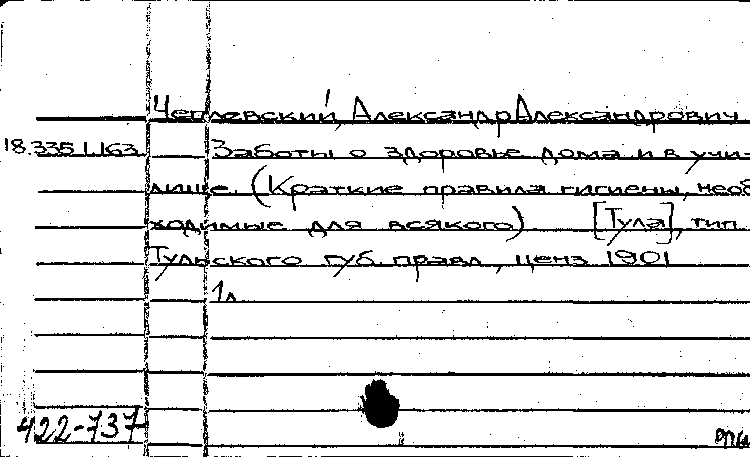 Чеплевский, Александр Александрович
18.335.1.163 Заботы о здоровье дома и в учи-
лище. (Краткие правила гигиены, необ
ходимые для всякого) [Тула], тип.
Тульского губ. правл., ценз. 1901
1л.
422-737